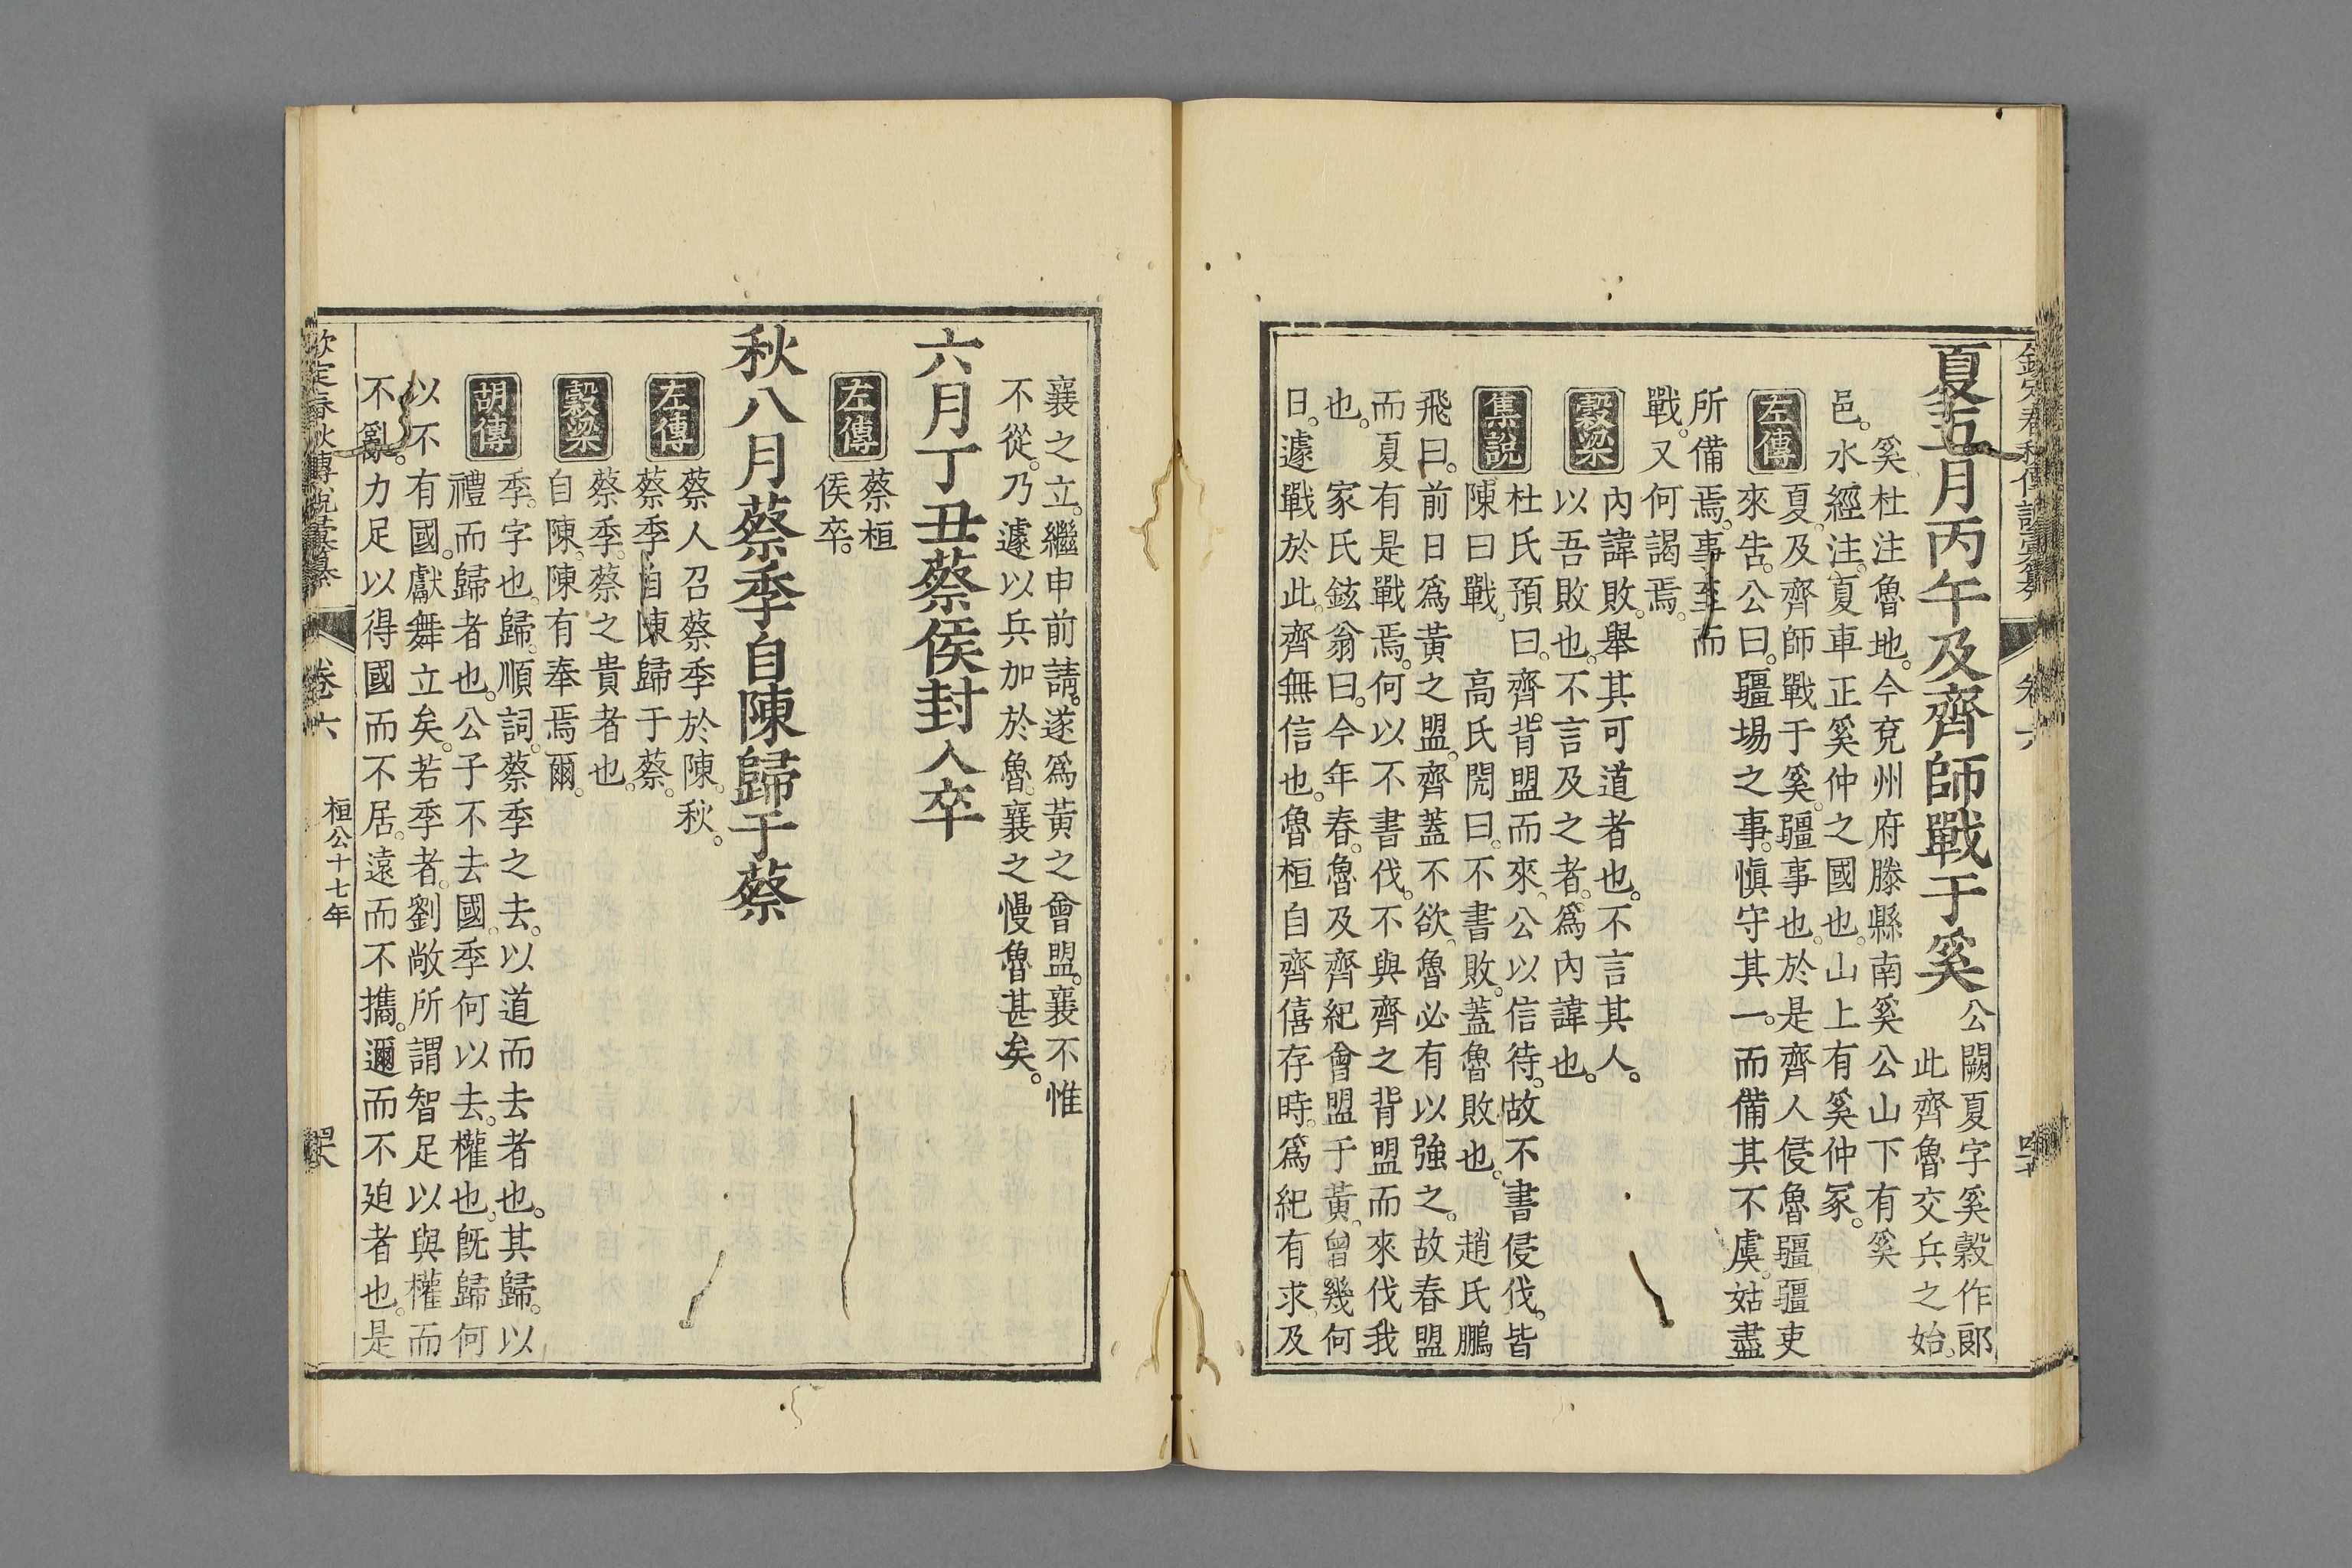 夏五月丙午及齊師戰于奚 公闕夏字奚穀作郞
此齊魯交兵之始。
奚杜注魯地。今兗州府滕縣南奚公山下有奚
邑。水經注。夏車正奚仲之國也。山上有奚仲冢。
左傳 夏。及齊師戰于奚。疆事也。於是齊人侵魯疆疆吏
來告。公曰。疆埸之事。愼守其一。而備其不虞。姑盡
所備焉。事至而
戰。又何謁焉。
穀梁 內諱敗。舉其可道者也。不言其人。
以吾敗也。不言及之者。爲內諱也。
集說 杜氏預曰。齊背盟而來。公以信待。故不書侵伐。皆
陳曰戰。 高氏閌曰。不書敗。蓋魯敗也。 趙氏鵬
飛曰。前日爲黃之盟。齊蓋不欲。魯必有以強之。故春盟
而夏有是戰焉。何以不書伐。不與齊之背盟而來伐我
也。 家氏鉉翁曰。今年春。魯及齊紀會盟于黃。曾幾何
日。遽戰於此。齊無信也。魯桓自齊僖存時。爲紀有求。及
襄之立。繼申前請。遂爲黃之會盟。襄不惟
不從。乃遽以兵加於魯。襄之慢魯甚矣。
六月丁丑蔡侯封人卒
左傳 蔡桓
侯卒。
秋八月蔡季自陳歸于蔡
左傳 蔡人召蔡季於陳。秋。
蔡季自陳歸于蔡。
穀梁 蔡季。蔡之貴者也。
自陳。陳有奉焉爾。
胡傳 季。字也。歸。順詞。蔡季之去。以道而去者也。其歸。以
禮而歸者也。公子不去國。季何以去。權也。旣歸何
以不有國。獻舞立矣。若季者。劉敞所謂智足以與權而
不亂。力足以得國而不居。遠而不攜。邇而不廹者也。是
欽定春秋傳說彙纂 卷六 桓公十七年